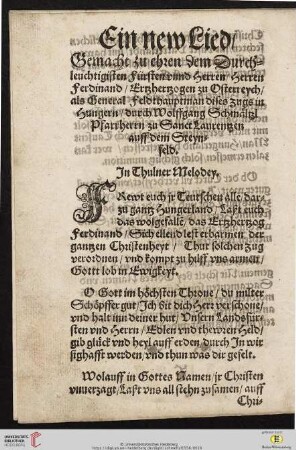 Ein new Lied/
Gemacht zu ehren dem Durch-
leuchtigisten Fürsten vnd Herrn/ Herrn
Ferdinand/ Ertzhertzogen zu Ostereych/
als General Feldthauptman dises Zugs in
Hungern/ durch Wolffgang Schmältzl
Pfarrherrn zu Sanct Laurentzen
auff dem Steyn-
feld.
In Thulner Melodey.
FRewt euch jr Teutschen alle dar/
zu gantz Hungerland/ Last euch
das wolgefalle/ das Ertzhertzog
Ferdinand/ Sich ellend lest erbarmen/ der
gantzen Christenheyt/ Thur solchen Zug
verordnen/ vnd kompt zu hilff vns armen/
Gott lob in Ewigkeyt.
O Gott im höchsten Throne/ du milter
Schöpffer gut/ Ich bit dich Herr verschone/
vnd halt inn deiner hut/ Unsern Landsfür-
sten vnd Herrn/ Edlen vnd thewren Held/
gib glück vnd heyl auff erden/ durch In wir
sighafft werden/ vnd thun was dir gefelt.
Wolauff in Gottes Namen/ jr Christen
vnuerzagt/ Last vns all sehn zusamen/ auff
Chri-